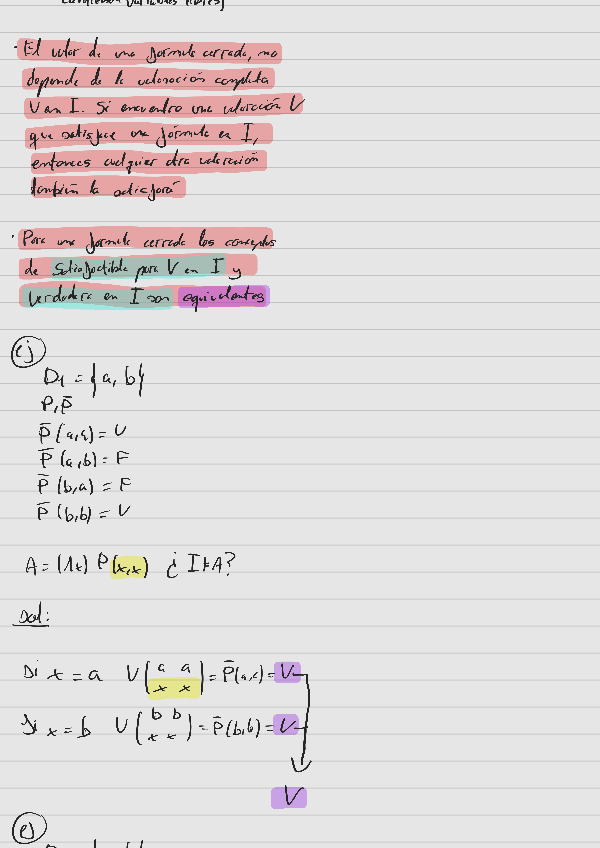 · El valor de una fórmula cerrada, no
depende de la valoración completa
V en I. Si encuentro una valoración V
que satisface una fórmula en I,
entonces cualquier otra valoración
también la satisfará
· Para una fórmula cerrada los conceptos
de satisfactible para V en I y
verdadera en I son equivalentes
ej
D1 = {a, b}
P, P̄
P̄ (a,a) = V
P̄ (a,b) = F
P̄ (b,a) = F
P̄ (b,b) = V
A = (Λx) P(x,x) ¿ I⊧A?
Sol:
Si x = a V ( a a
x x ) = P̄(a,a) = V
Si x = b V ( b b
x x ) = P̄(b,b) = V
V
ej